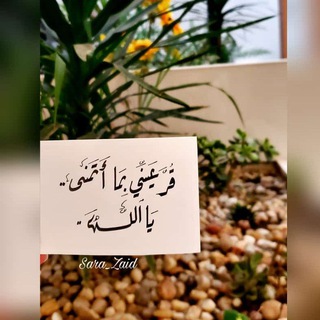 قُرَّ عَيْنِي بِمَا أَتَمَنَّى..
يَا اللّٰه..
Sara_Zaid